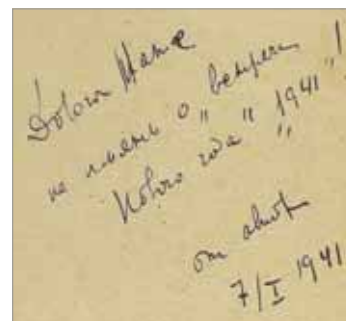 Дорогой Наме
на память о „встрече
Нового года “ 1941 „!
от автора
7/I 1941